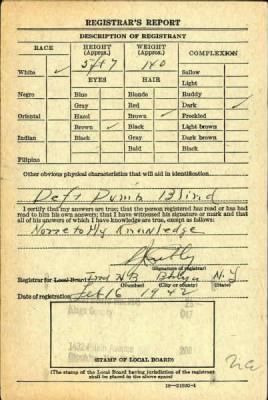 REGISTRAR'S REPORT
DESCRIPTION OF REGISTRANT
RACE HEIGHT (Approx.) WEIGHT (Approx.) COMPLEXION
5 ft 7 140
White ✓ Sallow
EYES HAIR Light
Negro Blue Blonde Ruddy
Gray Red Dark ✓
Oriental Hazel Brown ✓ Freckled
Brown ✓ Black Light brown
Indian Black Gray Dark brown
Bald Black
Filipino
Other obvious physical characteristics that will aid in identification
Def, Dumb Blind
I certify that my answers are true; that the person registered has read or has had
read to him his own answers; that I have witnessed his signature or mark and that
all of his answers of which I have knowledge are true, except as follows:
None to My Knowledge
(Signature of registrar)
Registrar for Local Board N.Y.
(Number) (City or county) (State)
Date of registration Feb 16 1942
(STAMP OF LOCAL BOARD)
(The stamp of the Local Board having jurisdiction of the registrant
shall be placed in the above space)
16—21630-1